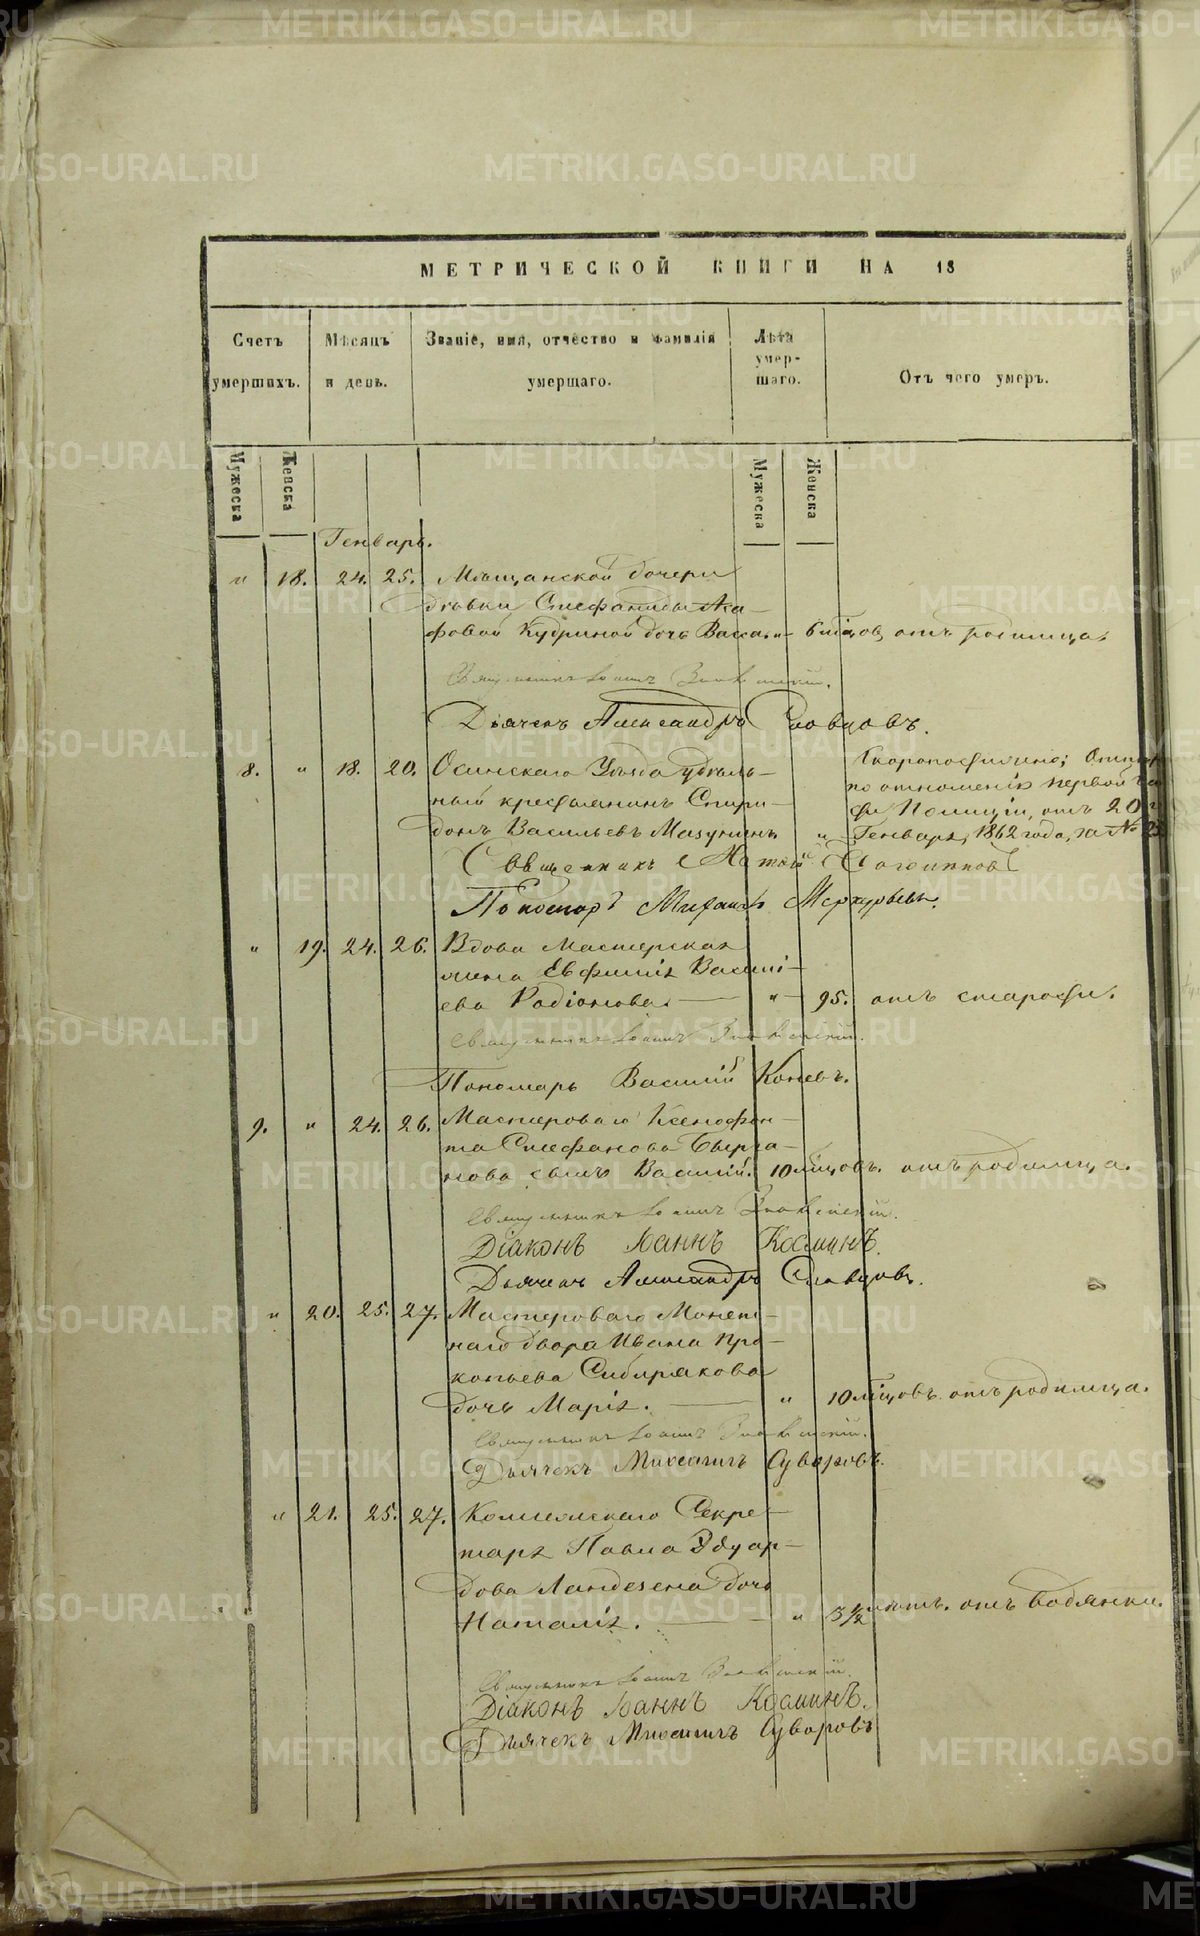 МЕТРИЧЕСКОЙ КНИГИ НА 18
Счетъ умершихъ.
Мѣсяцъ и день.
Званіе, имя, отчество и фамилія умершаго.
Лѣта умер-
шаго.
Отъ чего умеръ.
Мужеска
Женска
Мужеска
Женска
Генварь.
" 18. 24. 25. Мѣщанской дочери
дѣвки Стефаниды Ака-
фовой Кудриной дочь Васса. " 6 мѣцовъ отъ родимца.
Священникъ Іоаннъ
Дьячекъ Александръ Словцовъ.
8. " 18. 20. Осинскаго Уѣзда удѣль- Скоропостижно;
ный крестьянинъ Спири- по отношенію первой
донъ Васильевъ Мазунинъ Полиціи, отъ 20
" Генваря, 1862 года, за №
Священникъ
Пономарь Михаилъ Меркурьевъ.
" 19. 24. 26. Вдова мастерская
жена Евфимія Василі-
ева Родіонова. " 95. отъ старости.
Священникъ Іоаннъ
Пономарь Василій Коневъ.
9. " 24. 26. Мастероваго Ксенофон-
та Стефанова
сынъ Василій. 10 мѣцовъ. отъ родимца.
Священникъ Іоаннъ
Діаконъ Іоаннъ Косминъ.
Дьячекъ Александръ Словцовъ.
" 20. 25. 27. Мастероваго Монет-
наго двора Ивана Про-
копьева Сибирякова
дочь Марія. " 10 мѣцовъ. отъ родимца.
Священникъ Іоаннъ
Дьячекъ Михаилъ Суворовъ.
" 21. 25. 27. Коллежскаго Секре-
таря Павла Эдуар-
дова Ландезена дочь
Наталія. " 3½ лѣтъ. отъ водянки.
Священникъ Іоаннъ
Діаконъ Іоаннъ Косминъ.
Дьячекъ Михаилъ Суворовъ
METRIKI.GASO-URAL.RU